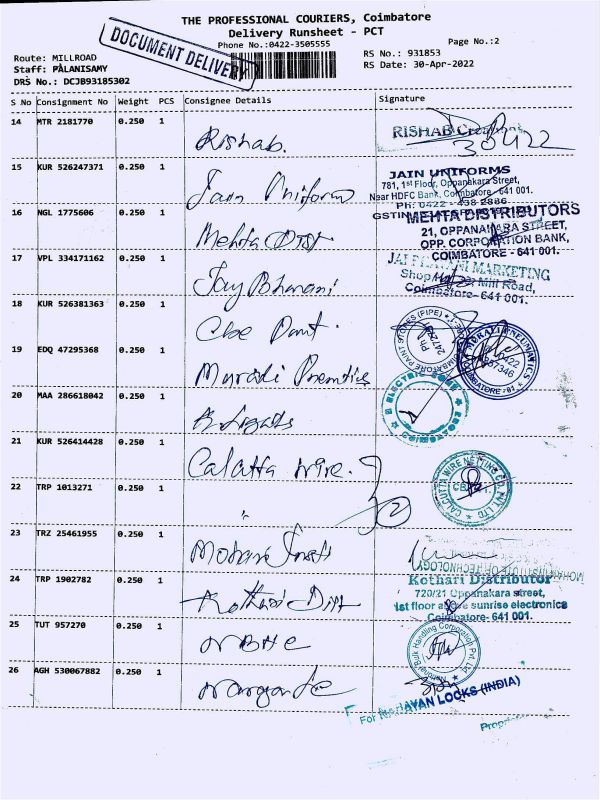 THE PROFESSIONAL COURIERS, Coimbatore
Delivery Runsheet - PCT
Phone No.:0422-3505555
Page No.:2
DOCUMENT DELIVERY
Route: MILLROAD
Staff: PALANISAMY
DRS No.: DCJB93185302
RS No.: 931853
RS Date: 30-Apr-2022
S No Consignment No Weight PCS Consignee Details Signature
14 MTR 2181770 0.250 1 Rishab. RISHAB
30422
15 KUR 526247371 0.250 1 Jain Uniform
JAIN UNIFORMS
781, 1st Floor, Oppanakara Street,
Near HDFC Bank, Coimbatore - 641 001.
Ph: 0422 - 438 2886
GSTIN
16 NGL 1775606 0.250 1 Mehta Dist
MEHTA DISTRIBUTORS
21, OPPANAKARA STREET,
OPP. CORPORATION BANK,
COIMBATORE - 641 001.
17 VPL 334171162 0.250 1 Jay Bhavani
MARKETING
Shop Mill Road,
Coimbatore- 641 001.
18 KUR 526381363 0.250 1 Cbe Paint.
COIMBATORE PAINT STORES (PIPE)
19 EDQ 47295368 0.250 1 Muradi
PNEUMATICS
0422
COIMBATORE - 01
20 MAA 286618042 0.250 1
ELECTRIC
21 KUR 526414428 0.250 1 Calcutta wire.
CALCUTTA WIRE NETTING CO. PVT. LTD
22 TRP 1013271 0.250 1 " 2
23 TRZ 25461955 0.250 1
INSTITUTE OF TECHNOLOGY
24 TRP 1902782 0.250 1 Kothari Dist
Kothari Distributor
720/21 Oppanakara street,
1st floor above sunrise electronics
Coimbatore- 641 001.
25 TUT 957270 0.250 1 NBHC
National Bulk Handling Corporation Pvt. Ltd
26 AGH 530067882 0.250 1
For NARAYAN LOCKS (INDIA)